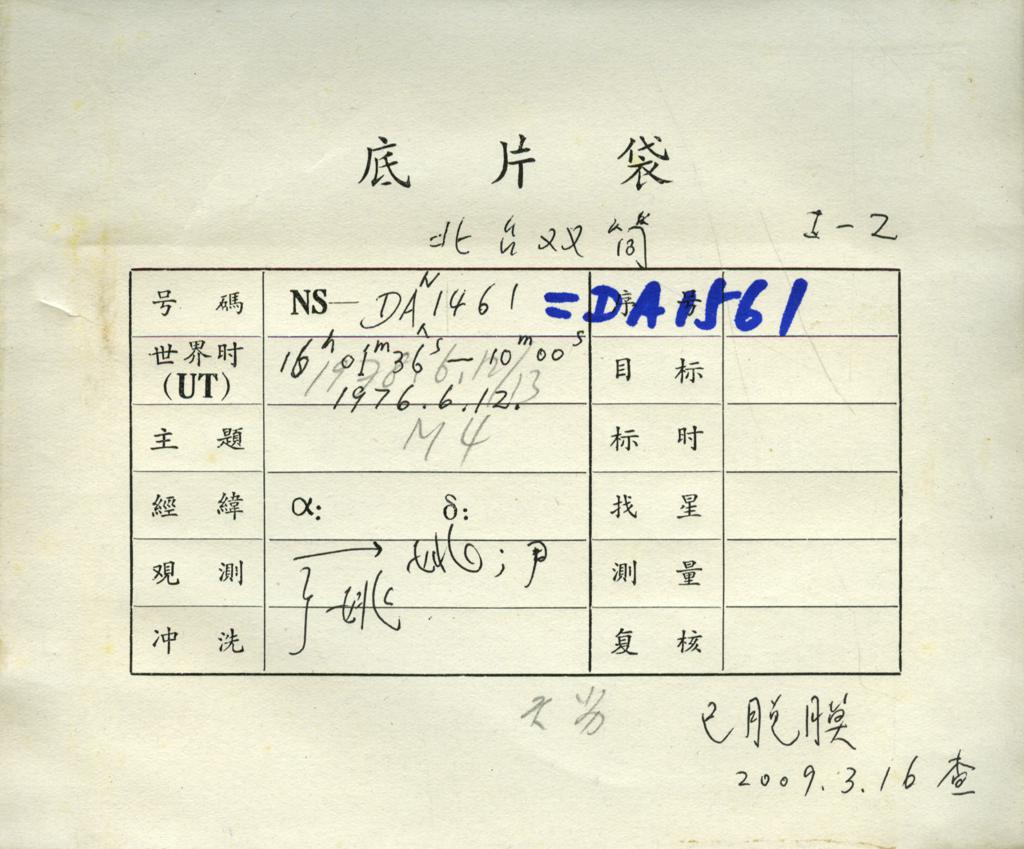 底 片 袋
北台双筒 I-2
号 碼 NS— DA N 1461 =DA1561 序 号
世界时 (UT) 16h 01m 36s — 10m 00s 目 标
1976.6.12.
主 題 M4 标 时
經 緯 α: δ: 找 星
观 测 → 姚; 尹 测 量
冲 洗 姚 复 核
已脱膜
2009.3.16 查